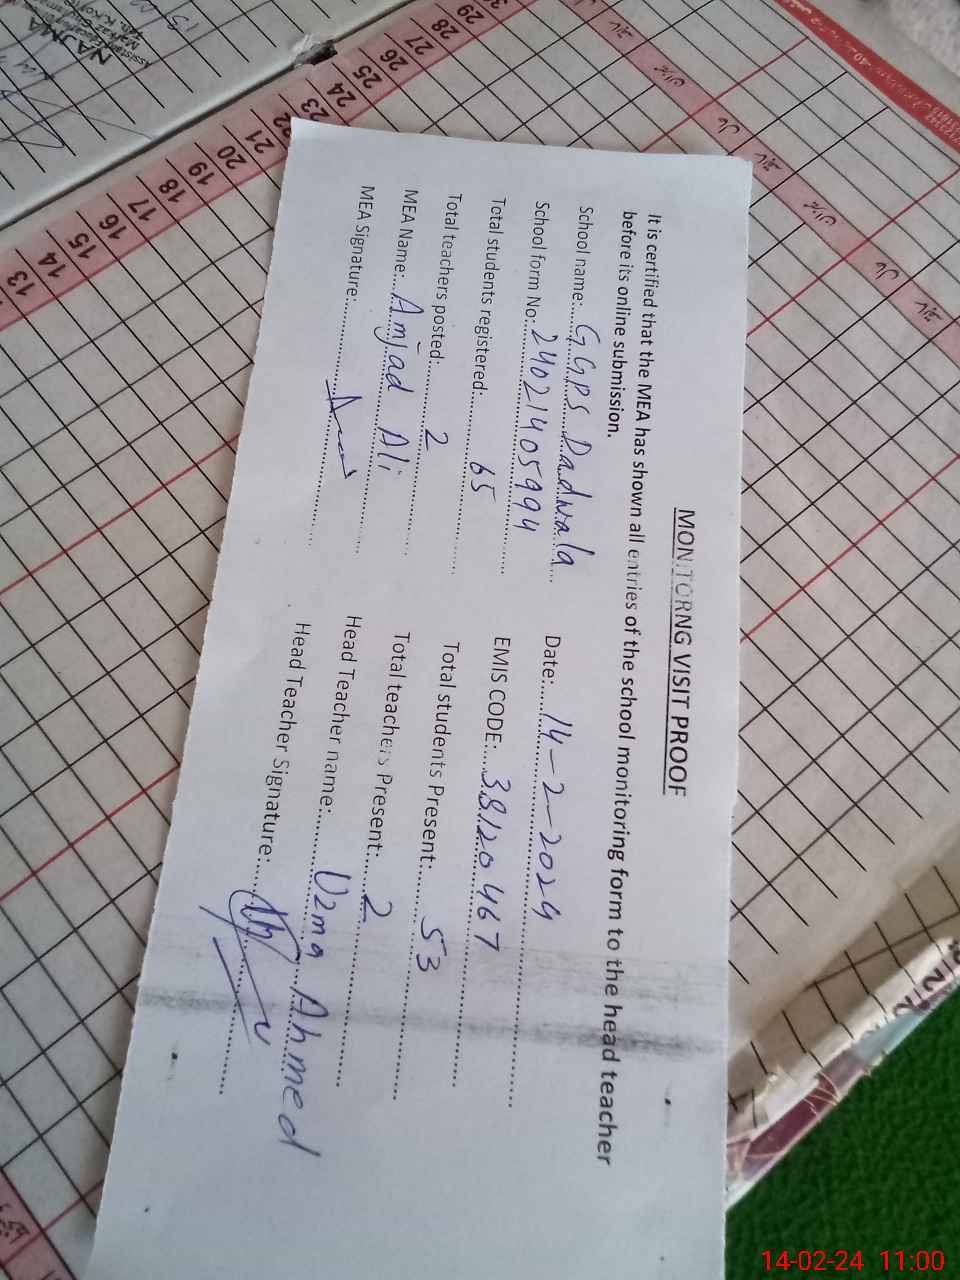 MONITORNG VISIT PROOF
It is certified that the MEA has shown all entries of the school monitoring form to the head teacher
before its online submission.
School name: GGPS Dadwala
Date: 14-2-2024
School form No: 24021405994
EMIS CODE: 38120467
Total students registered: 65
Total students Present: 53
Total teachers posted: 2
Total teachers Present: 2
MEA Name: Amjad Ali
Head Teacher name: Uzma Ahmed
MEA Signature:
Head Teacher Signature:
29
28
27
26
25
24
23
22
21
20
19
18
17
16
15
14
13
NAJMA
14-02-24 11:00